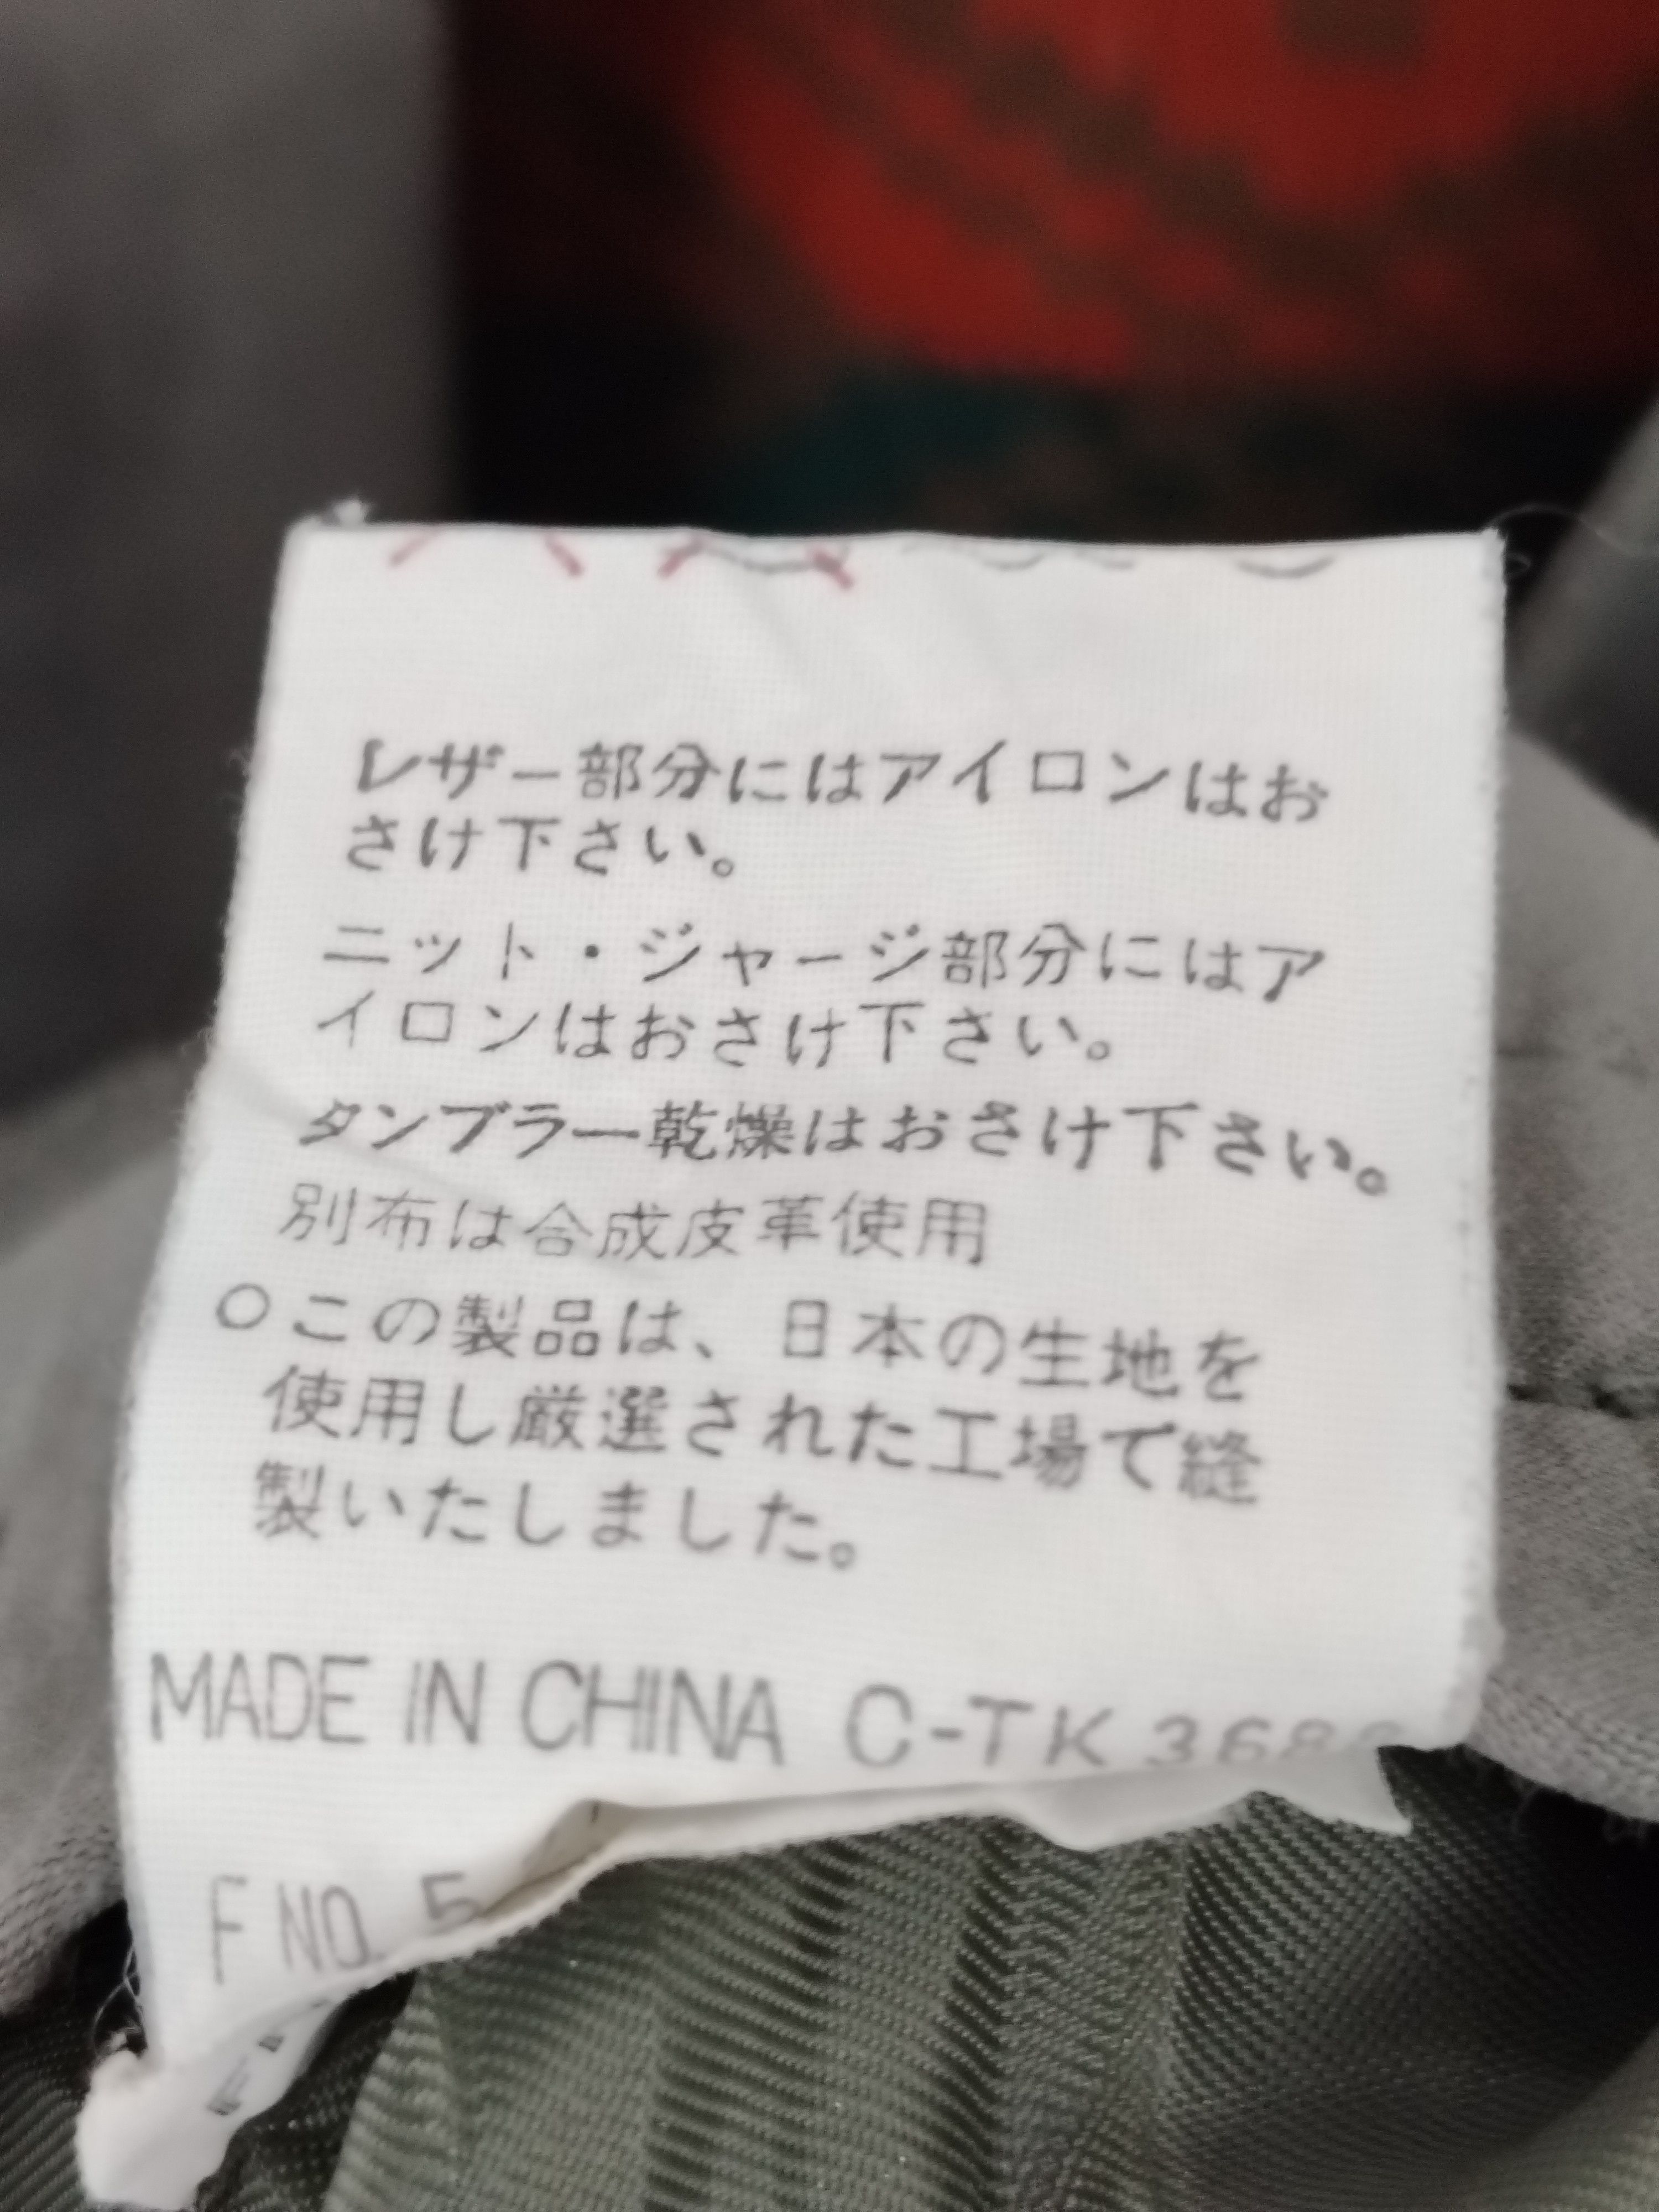 レザー部分にはアイロンはお
さけ下さい。
ニット・ジャージ部分にはア
イロンはおさけ下さい。
タンブラー乾燥はおさけ下さい。
別布は合成皮革使用
○この製品は、日本の生地を
使用し厳選された工場で縫
製いたしました。
MADE IN CHINA C-TK
F NO. 5